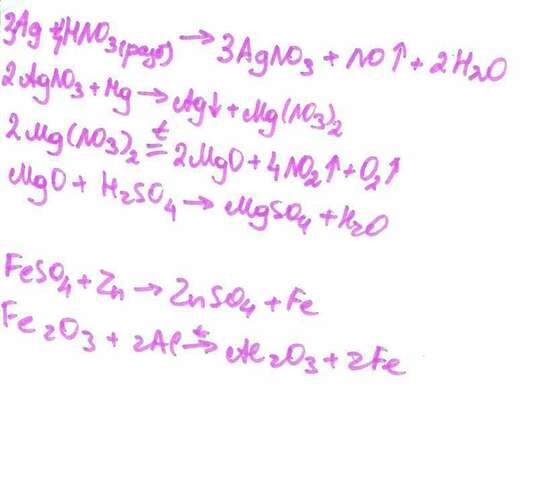 3Ag + 4HNO3(разб) → 3AgNO3 + NO↑ + 2H2O
2AgNO3 + Mg → Ag↓ + Mg(NO3)2
2Mg(NO3)2 t= 2MgO + 4NO2↑ + O2↑
MgO + H2SO4 → MgSO4 + H2O
FeSO4 + Zn → ZnSO4 + Fe
Fe2O3 + 2Al t→ Al2O3 + 2Fe